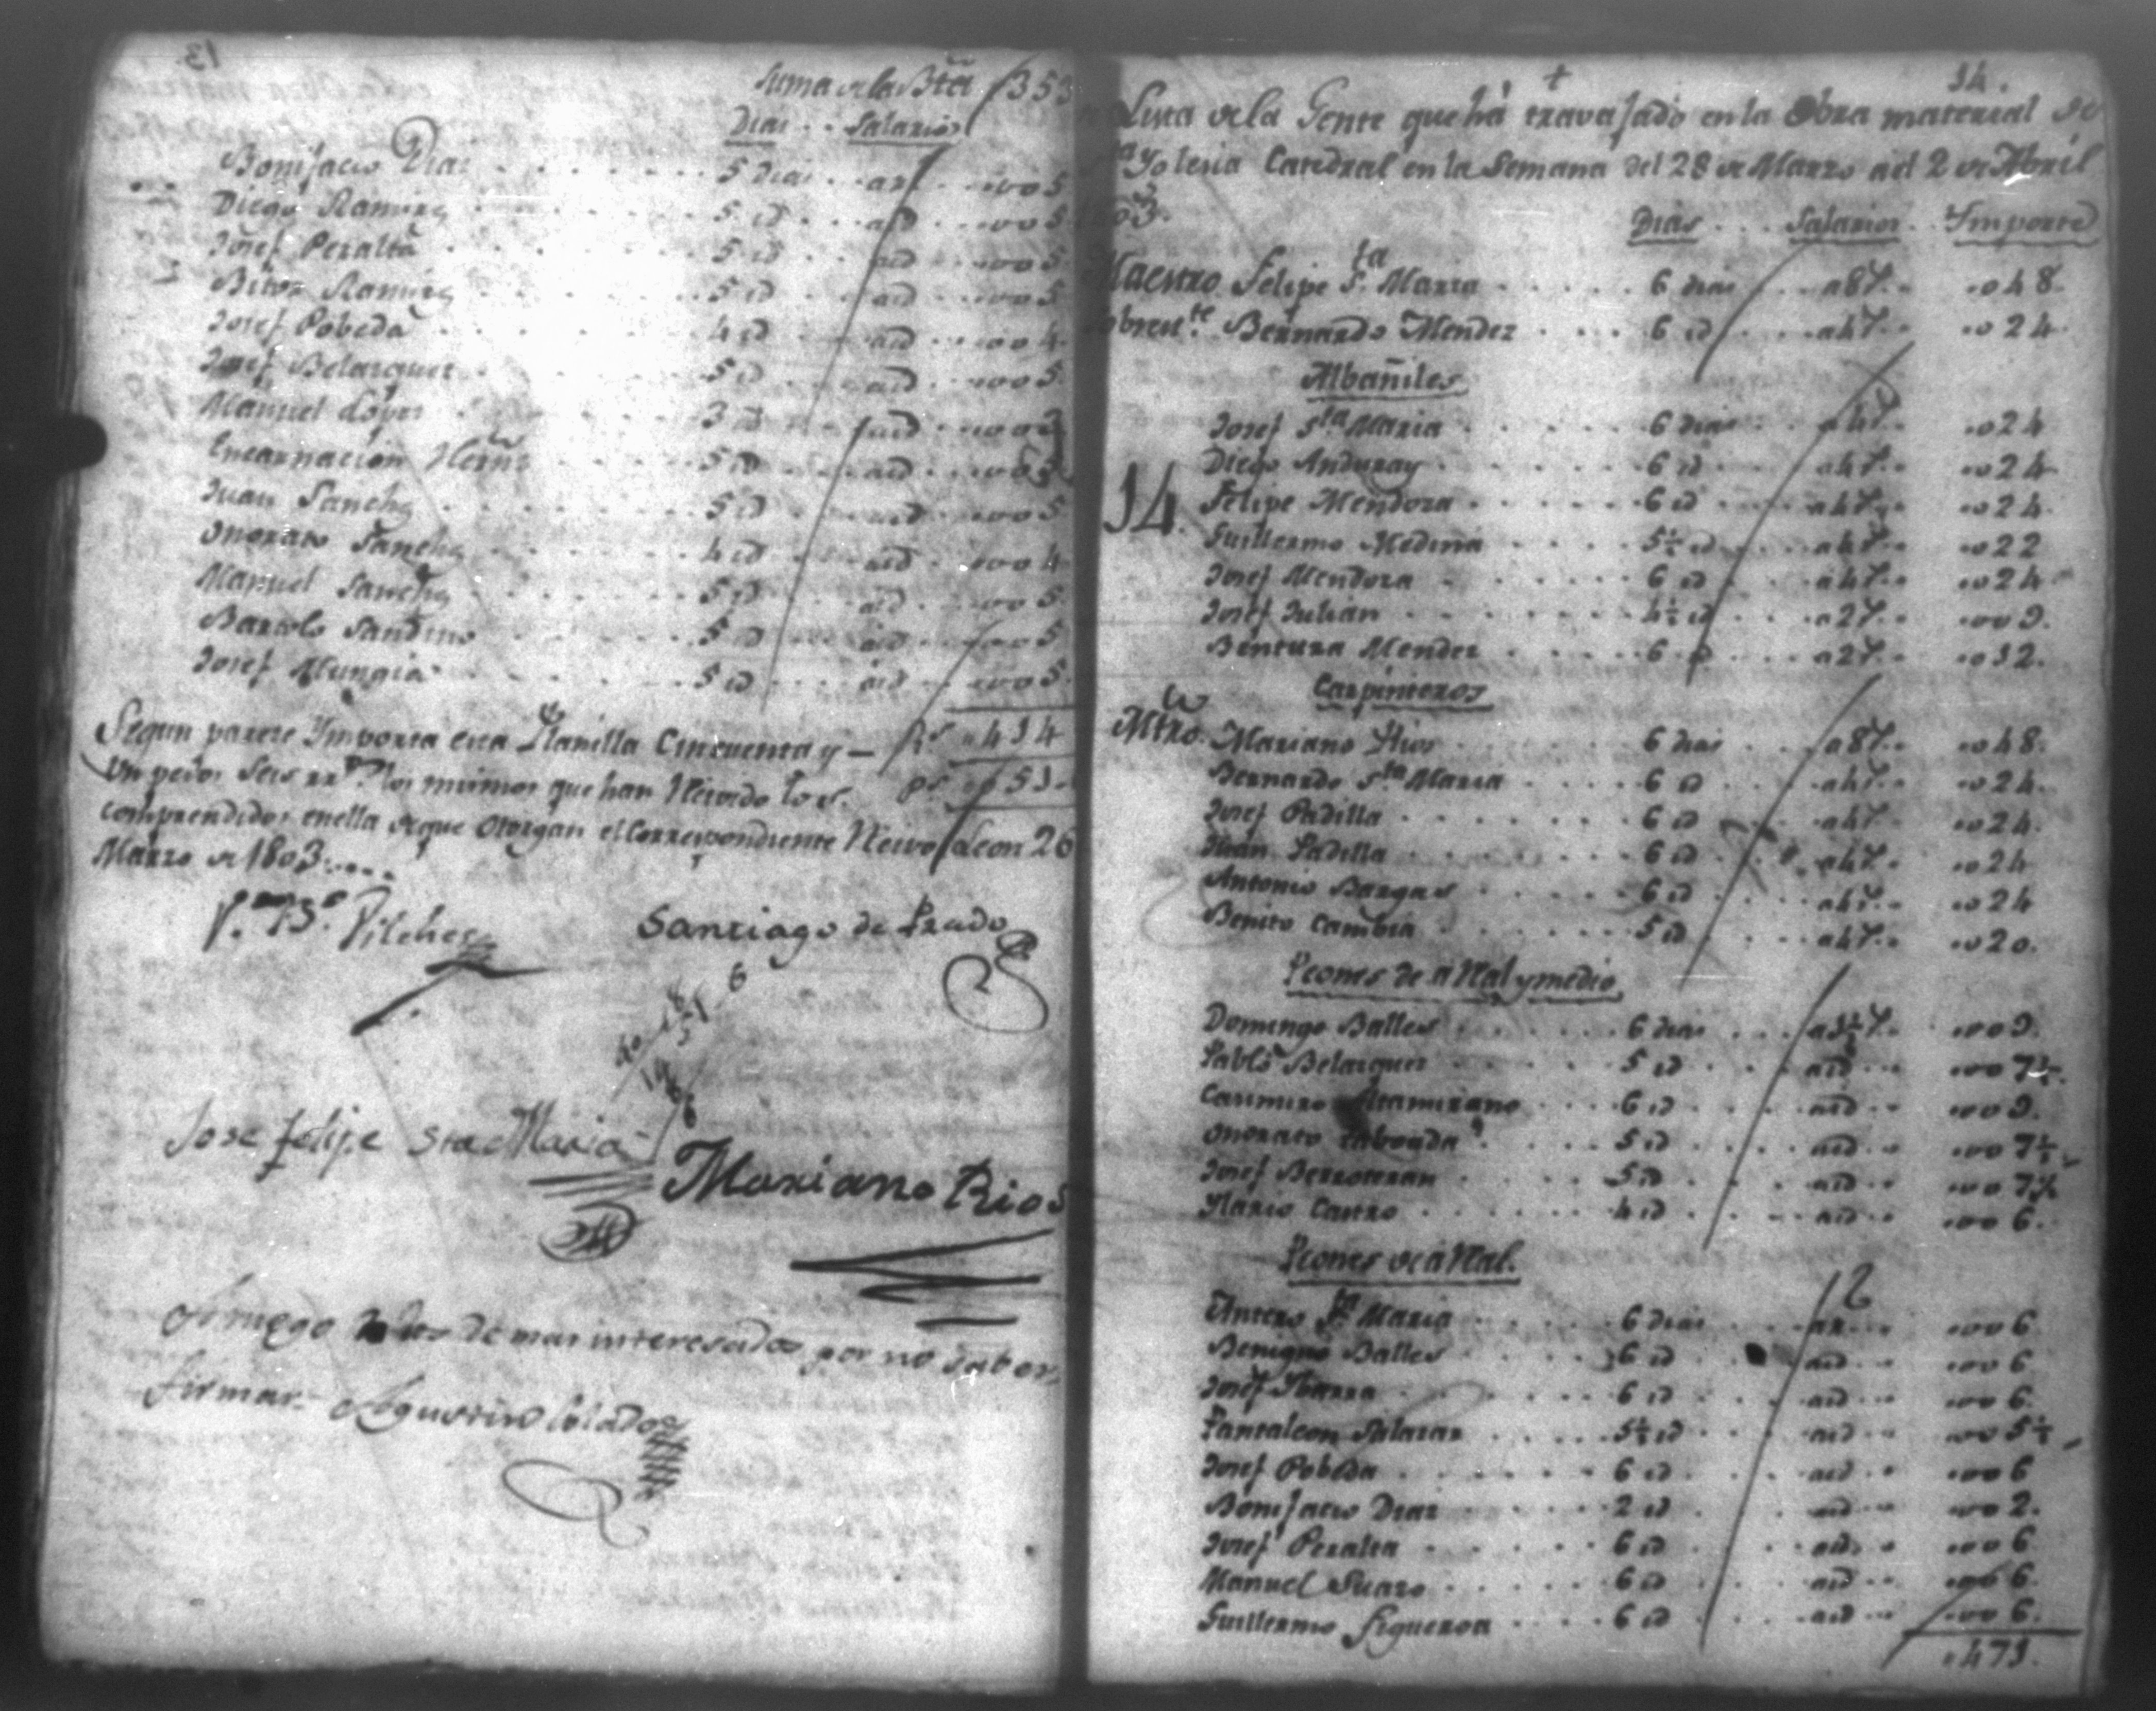 13
Suma de la Bta 353
Dias . . Salarios
Bonifacio Diaz . . . . 5 dias . . a 1 r . . 005
Diego Ramirez . . . . 5 id . . aid . . 005
Josef Peralta . . . . 5 id . . aid . . 005
Bitor Ramirez . . . . 5 id . . aid . . 005
Josef Pobeda . . . . 4 id . . aid . . 004
Josef Belasquez . . . . 5 id . . aid . . 005
Manuel Lopez . . . . 3 id . . aid . . 003
Encarnacion Hernz . . . . 5 id . . aid . . 005
Juan Sanchez . . . . 5 id . . aid . . 005
Onorato Sanchez . . . . 4 id . . aid . . 004
Manuel Sanchez . . . . 5 id . . aid . . 005
Bartolo Sandino . . . . 5 id . . aid . . 005
Josef Mungia . . . . 5 id . . aid . . 005
Segun parece Ymporta esta Planilla Cincuenta y — Rs 414
Un pesos seis rrs los mismos que han Recivido los ps 051.
comprendidos en ella de que otorgan el Correspondiente Recivo Leon 26
Marzo de 1803....
Vilches
Santiago de Prado
51 6
Jose felipe Sta Maria
Mariano Rios
A ruego de los de mas interesados por no saber
firmar. Agustin Colado
+
14.
Lista de la Gente que há travajado en la Obra material de
Yglesia Catedral en la Semana del 28 de Marzo al 2 de Abril
03.
Dias . . Salarios . . Ymporte
Maestro Felipe Sta Maria . . . . 6 dias . . a 8 r . . 048.
Sobreste Bernardo Mendez . . . . 6 id . . a 4 r . . 024.
Albañiles
Josef Sta Maria . . . . 6 dias . . a 4 r . . 024
Diego Anduray . . . . 6 id . . a 4 r . . 024
14. Felipe Mendoza . . . . 6 id . . a 4 r . . 024.
Guillermo Medina . . . . 5½ id . . a 4 r . . 022
Josef Mendoza . . . . 6 id . . a 4 r . . 024
Josef Julian . . . . 4½ id . . a 2 r . . 009.
Bentura Mendez . . . . 6 id . . a 2 r . . 012.
Carpinteros
Mtro. Mariano Rios . . . . 6 dias . . a 8 r . . 048.
Bernardo Sta Maria . . . . 6 id . . a 4 r . . 024.
Josef Padilla . . . . 6 id . . a 4 r . . 024.
Juan Padilla . . . . 6 id . . a 4 r . . 024
Antonio Bargas . . . . 6 id . . a 4 r . . 024
Benito Cambia . . . . 5 id . . a 4 r . . 020.
Peones de a Rl y medio
Domingo Balles . . . . 6 dias . . a 1½ r . . 009.
Pablo Belasquez . . . . 5 id . . aid . . 007½.
Casimiro Altamirano . . . . 6 id . . aid . . 009.
Onorato Taboada . . . . 5 id . . aid . . 007½
Josef Berroteran . . . . 5 id . . aid . . 007½
Ylario Castro . . . . 4 id . . aid . . 006.
Peones de a Rl.
Antero Sta Maria . . . . 6 dias . . a 1 r . . 006
Benigno Balles . . . . 6 id . . aid . . 006
Josef Ybarra . . . . 6 id . . aid . . 006.
Pantaleon Salazar . . . . 5½ id . . aid . . 005½
Josef Pobeda . . . . 6 id . . aid . . 006
Bonifacio Diaz . . . . 2 id . . aid . . 002.
Josef Peralta . . . . 6 id . . aid . . 006
Manuel Suazo . . . . 6 id . . aid . . 006.
Guillermo Figueroa . . . . 6 id . . aid . . 006.
473.